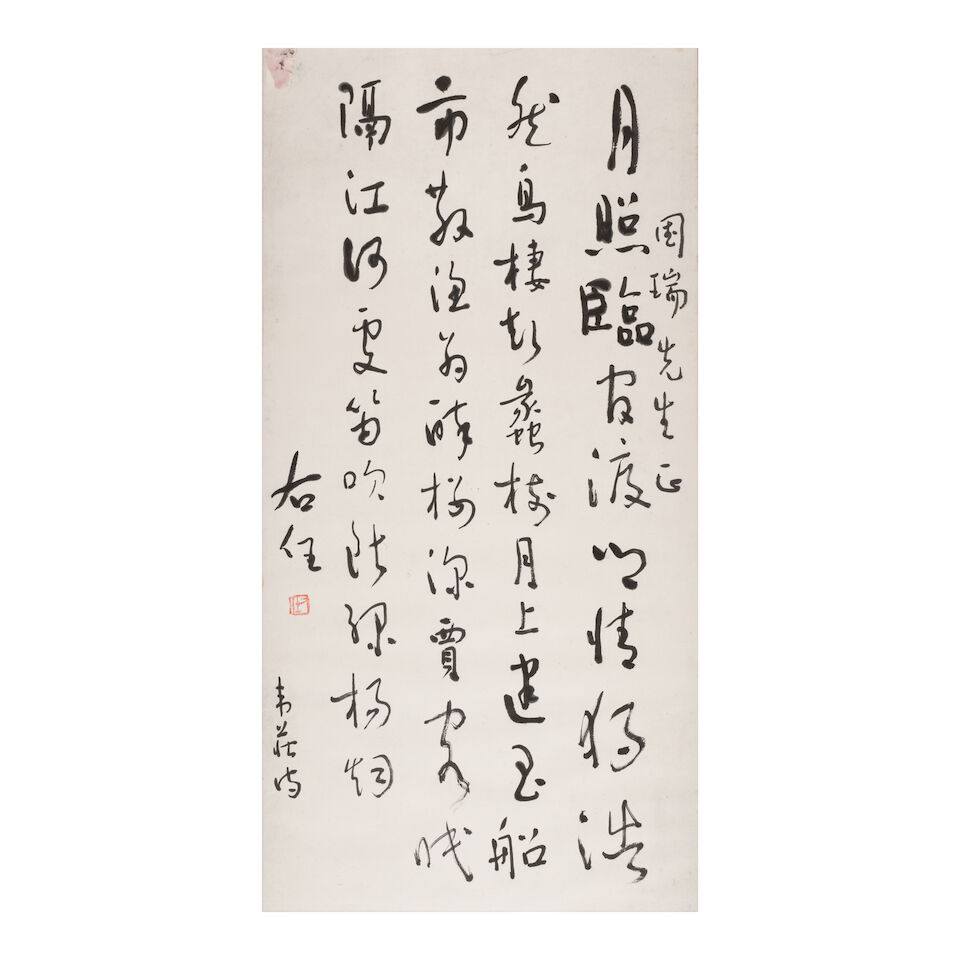 國瑞先生正
月照臨官渡鄉情獨浩
然鳥棲彭蠡樹月上建昌船
市散漁翁醉樓深賈客眠
隔江何處笛吹斷綠楊烟
右任
韋莊詩